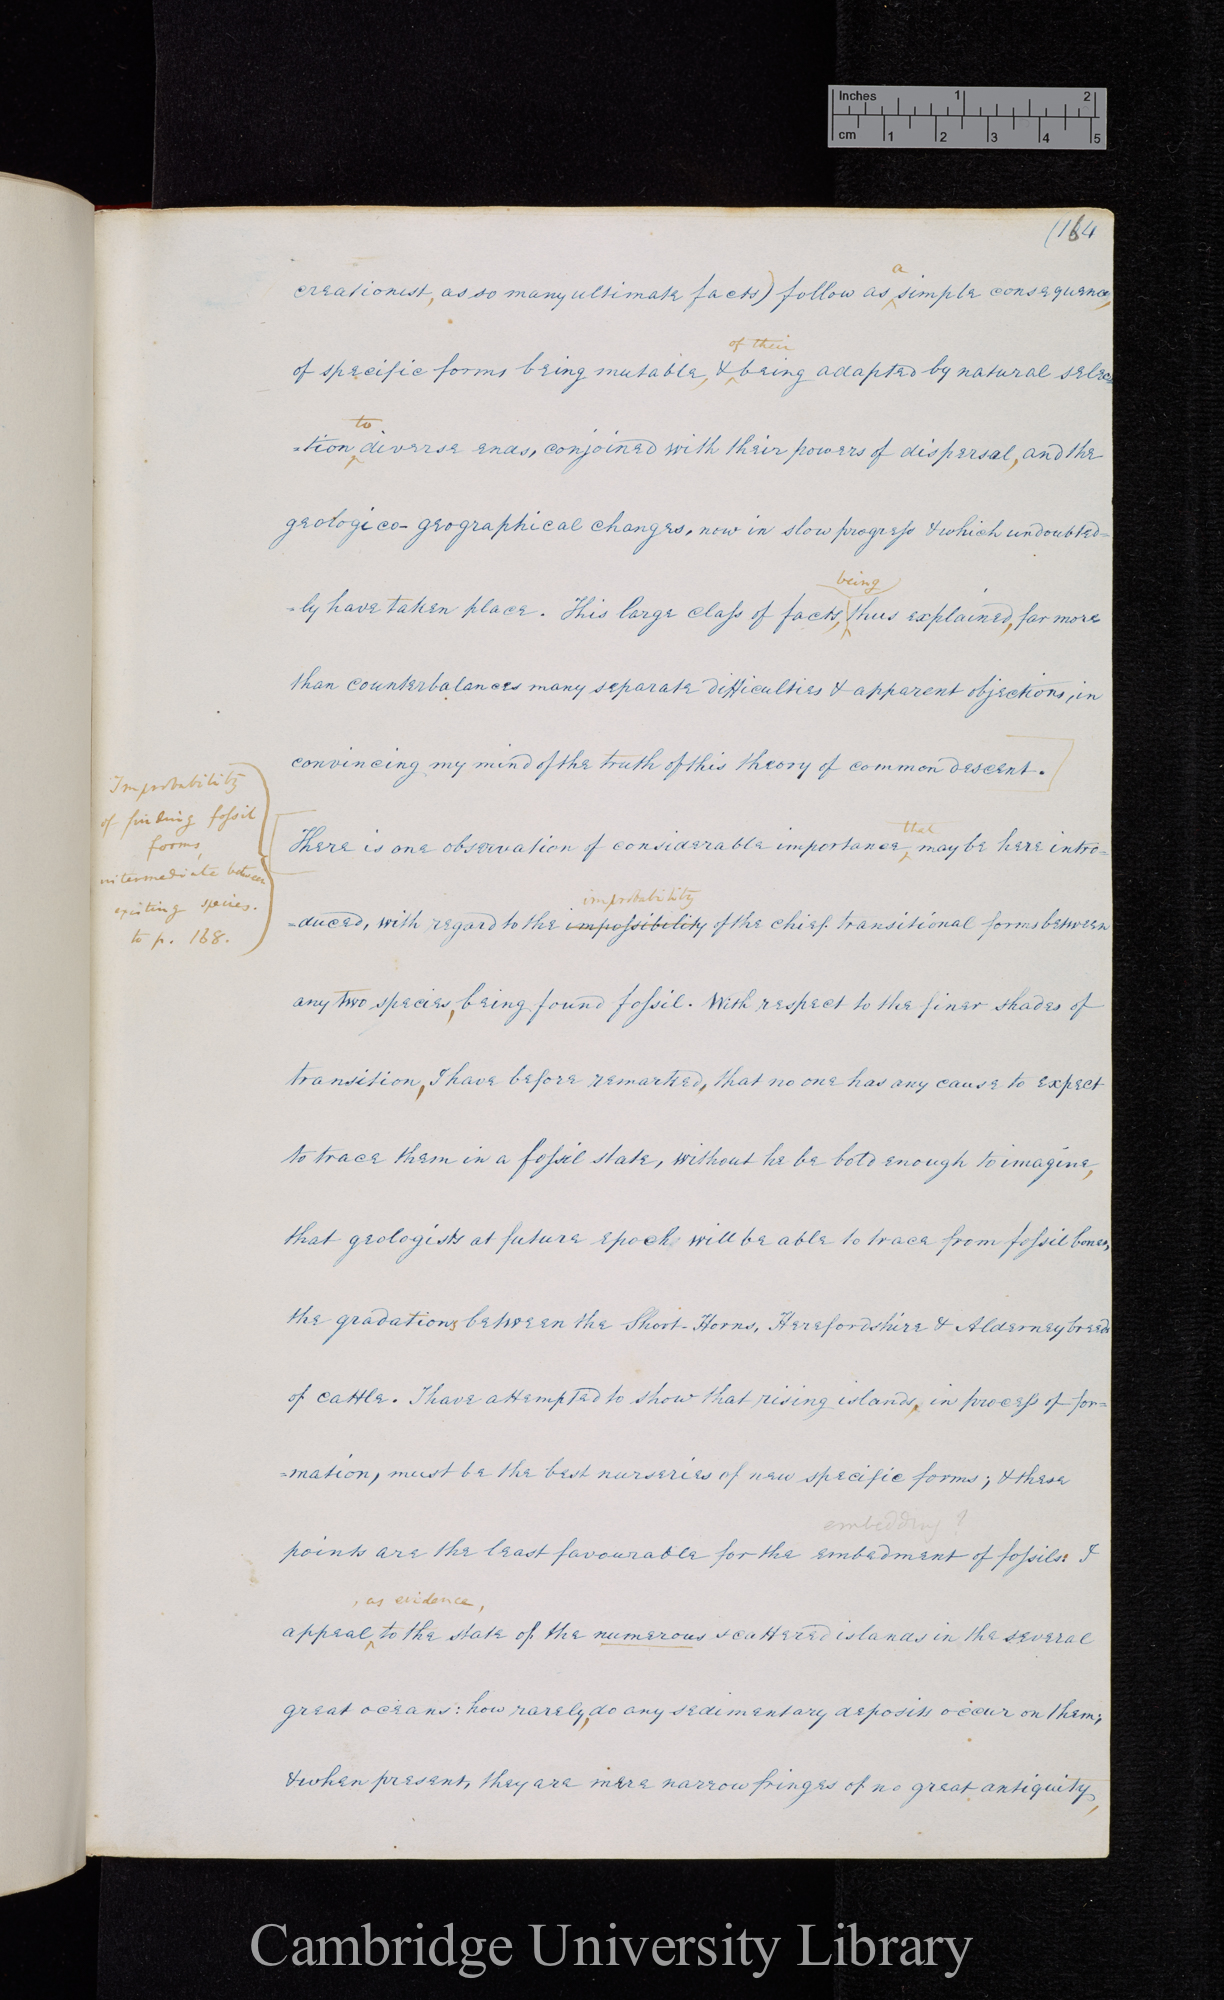 Inches 1 2
cm 1 2 3 4 5
(164
a
creationist, as so many ultimate facts) follow as simple consequence,
of their
of specific forms being mutable, & being adapted by natural selec-
to
=tion diverse ends, conjoined with their powers of dispersal, and the
geologico-geographical changes, now in slow progress & which undoubted=
being
=ly have taken place. This large class of facts, thus explained, far more
than counterbalances many separate difficulties & apparent objections, in
convincing my mind of the truth of this theory of common descent.
Improbability
of finding fossil
forms,
intermediate between
existing species.
to p. 168.
that
There is one observation of considerable importance, may be here intro=
improbability
=duced, with regard to the impossibility of the chief transitional forms between
any two species, being found fossil. With respect to the finer shades of
transition, I have before remarked, that no one has any cause to expect
to trace them in a fossil state, without he be bold enough to imagine,
that geologists at future epoch will be able to trace from fossil bones,
the gradations between the Short-Horns, Herefordshire & Alderney breeds
of cattle. I have attempted to show that rising islands, in process of for=
=mation, must be the best nurseries of new specific forms; & these
embedding?
points are the least favourable for the embedment of fossils: I
, as evidence,
appeal to the state of the numerous scattered islands in the several
great oceans: how rarely, do any sedimentary deposits occur on them;
& when present, they are mere narrow fringes of no great antiquity,
Cambridge University Library